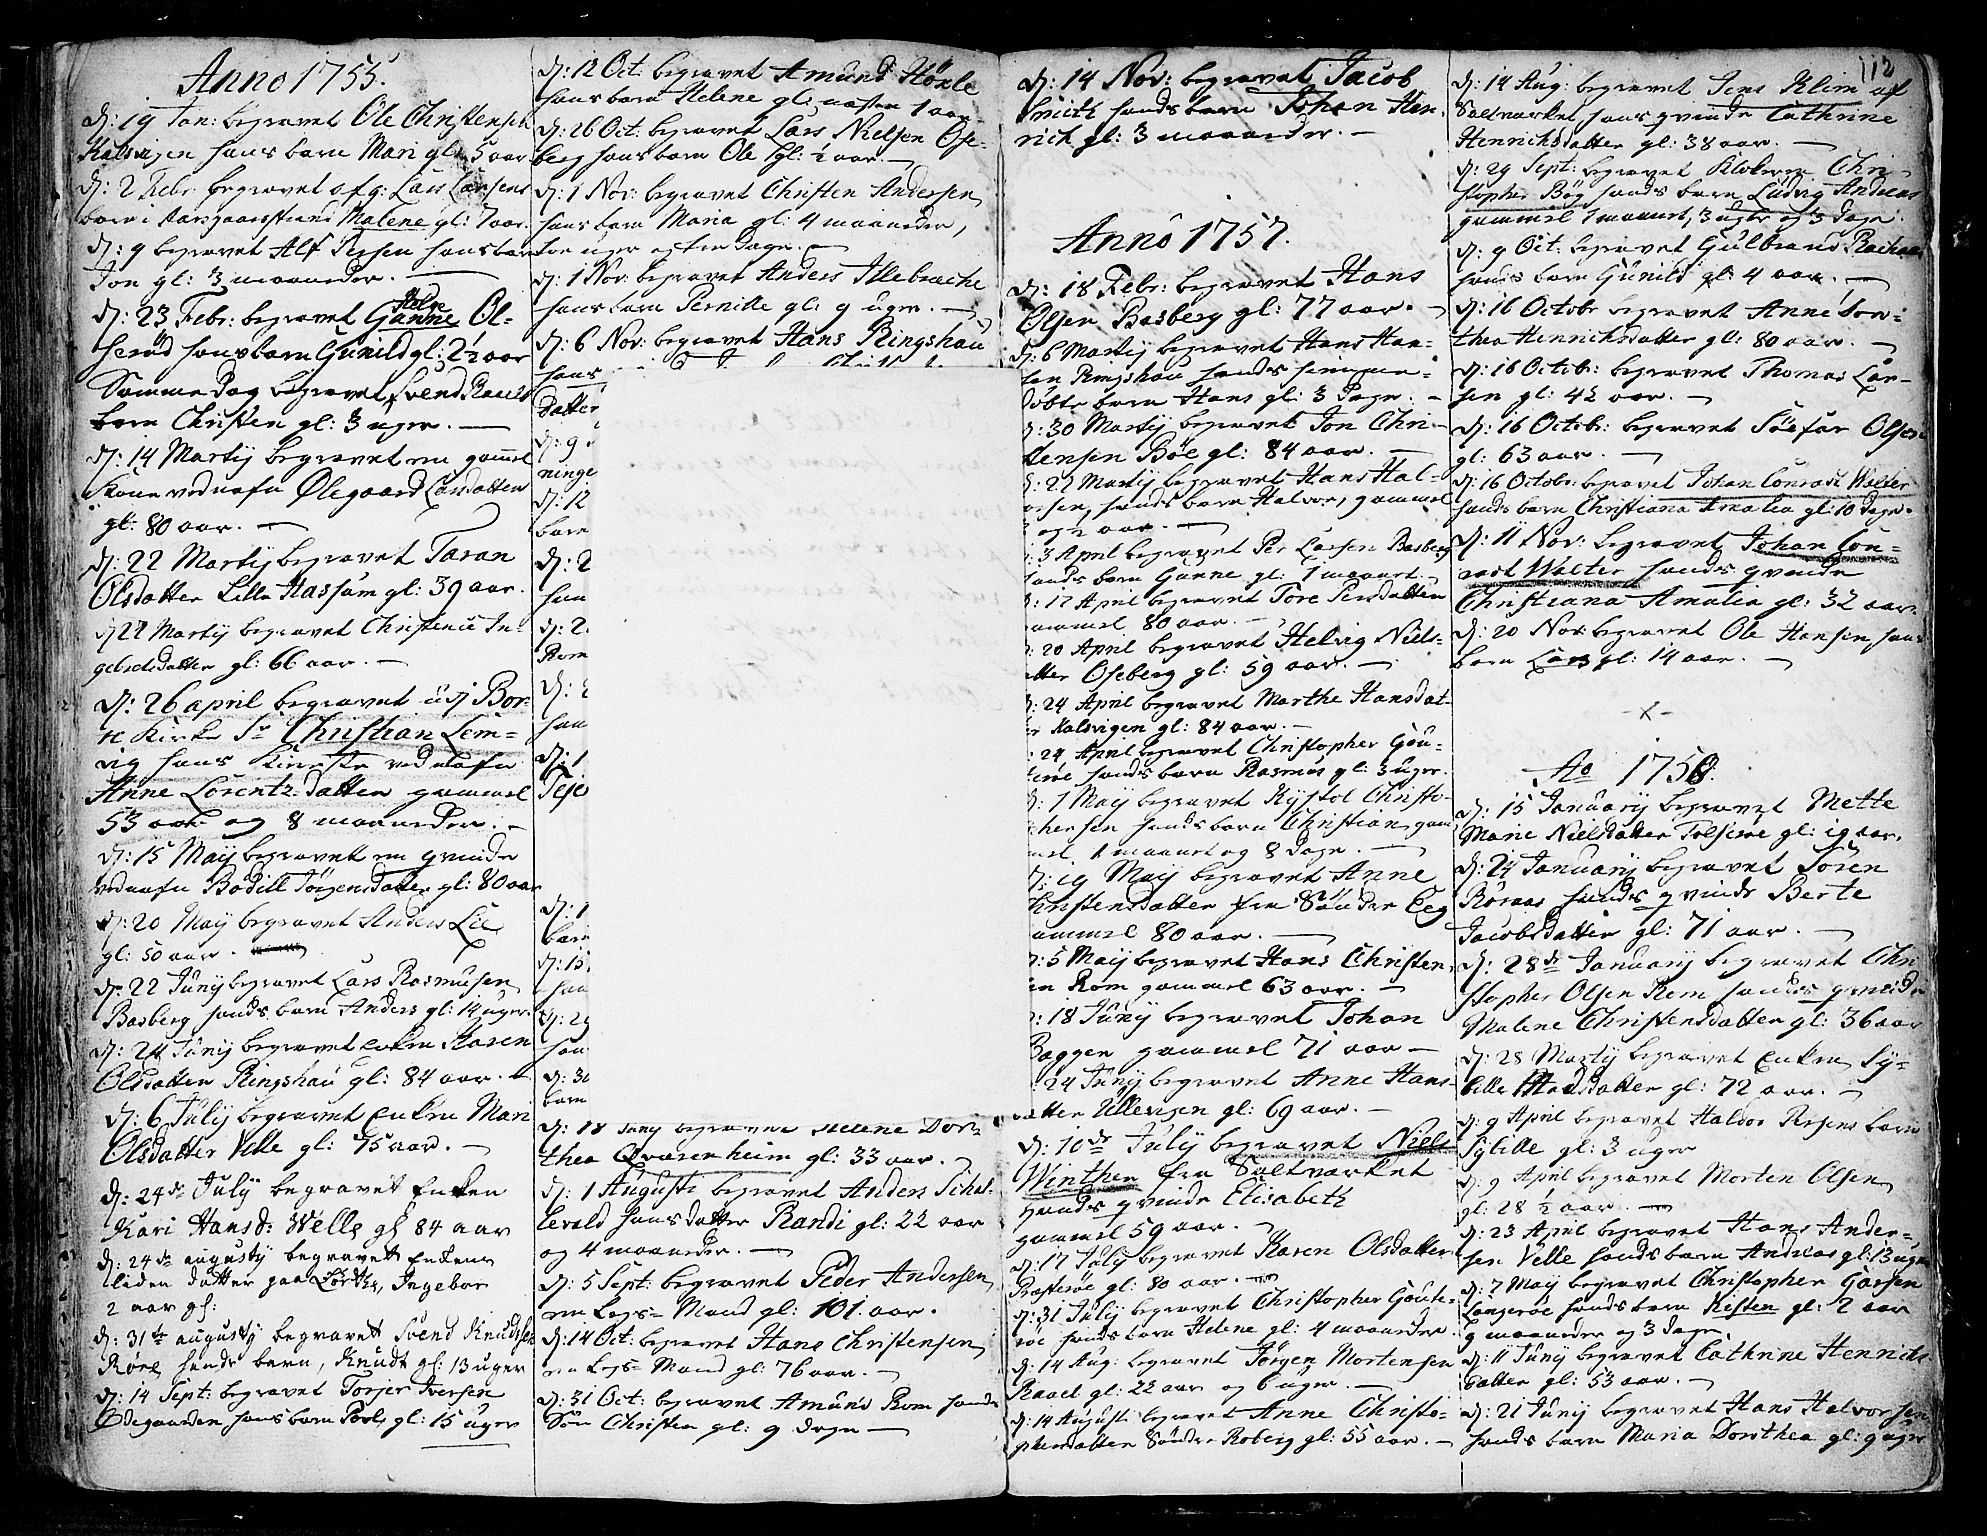 Anno 1755.
D: 19 Jan: begravet Ole Christensen
Kalsvigen hans barn Mari gl: 5 aar
D: 2 Febr: begravet afg: Lars Larsens
barn i Aarsgaarsstrand Malene gl: 7 aar.
D: 9 begravet Alf Persen hans barn
Jon gl: 3 maaneder.
D: 23 Febr: begravet Gunne Ol-
serød hans barn Gunild gl: 2½ aar
Samme Dag begravet Svend
barn Christen gl: 3 uger.
D: 14 Martij begravet en gam̅el
Kone ved nafn Ølegaard Larsdatter
gl: 80 aar.
D: 22 Martij begravet Taran
Olsdatter Lille Hassum gl: 39 aar.
D 22 Martij begravet Christence In-
gebretsdatter gl: 66 aar.
D: 26 april begravet udj Bor-
re Kirke Sr Christian Lem-
vig hans Kiereste ved nafn
Anne Lorentz-datter gammel
53 aar og 8 maaneder.
D: 15 Maij begravet en qvinde
ved nafn Bodill Jørgensdatter gl: 80 aar
D: 20 Maij begravet Anders Lie
gl: 50 aar.
D: 22 Junij begravet Lars Rasmusen
Basberg hands barn Anders gl: 14 uger.
D: 24 Junij begravet enken Karen
Olsdatter Ringshau gl: 84 aar.
D: 6 Julij begravet Enken Mari
Olsdatter Velle gl: 75 aar.
D: 24de July begravet Enken
Kari Hansd: Welle gl 84 aar
D: 24de augusty begravett Enkens
liden datter paa Lørthe, Ingebor
2 aar gl:
D: 31te augusty begravett Svend Knudsen
Røre hands barn, Knudt gl: 13 uger
D: 14 Sept: begravet Torjer Iversen
Ødegaarden hans barn Povl, gl: 15 uger
D: 12 Oct: begravet Amund Høxle
hans barn Helene gl: næsten 1 aar
D: 26 Oct: begravet Lars Nielsen Ose-
berg hans barn Ole gl: ½ aar.
D: 1 Nov: begravet Christen Andersen
hans barn Maria gl: 4 maaneder,
tre uger og tre Dage.
D: 1 Nov: begravet Anders Illebrache
hans barn Pernille gl: 9 uger.
D: 6 Nov: begravet Hans Ringshau
hans
Datter
D: 9
ninge
D: 12
barn
D: 2
han
D: 2
Rom
D: 2
han
D: 1
Teje
D: 1
barn
D: 15
han
D: 29
han
D: 30
barn
D: 18 Junij begravet Helene Dor-
thea Qvasenheim gl: 33 aar.
D: 1 Augusti begravet Anders Schal-
levald hans datter Randi gl: 22 aar
og 4 maaneder.
D: 5 Sept: begravet Peder Andersen
en Legs-Mand gl: 101 aar.
D: 14 Oct: begravet Hans Christensen
en Legs-Mand gl: 76 aar.
D: 31 Oct: begravet Amund Rom hands
Søn Christen gl: 9 dage
D: 14 Nov: begravet Jacob
Smith hands barn Johan Hen-
rich gl: 3 maaneder.
Anno 1757.
D: 18 Febr: begravet Hans
Olsen Basberg gl: 77 aar.
D: 6 Martij begravet Hans Han-
sen Ringshau hands hiemme-
døbte barn Hans gl: 3 Dage.
D: 30 Martij begravet Jon Chri-
stensen Bøe gl: 84 aar.
D: 27 Martij begravet Hans Hal-
vorsen, hands barn Halvor, gammel
og ½ aar.
D: 3 April begravet Per Larsen Basberg
hands barn Gunne gl: 1 maanet.
D: 17 April begravet Tore Persdatter
gammel 80 aar.
D: 20 April begravet Helvig Niels-
datter Oseberg gl: 59 aar.
D: 24 April begravet Marthe Hansdat-
ter Kalsvigen gl: 84 aar.
24 April begravet Christopher Gou-
terøe hands barn Rasmus gl: 3 uger.
D: 1 Maij begravet Kystol Christo-
phersen hands barn Christian, gam-
mel 1 maanet og 8 Dage.
D: 19 Maij begravet Anne
Christensdatter fra Sønder Eeg
gammel 80 aar.
D: 5 Maij begravet Hans Christen-
sen Rom gammel 63 aar.
D: 18 Junij begravet Johan
Baggen gammel 71 aar
24 Junij begravet Anne Hans-
datter Ullevigen gl: 69 aar.
D: 10de Julij begravet Niels
Winther fra Saltværket
Hands qvinde Elisabeth
gammel 59 aar.
D: 17 Julij begravet Karen Olsdatter
Prasterøe gl: 80 aar.
D: 31 Julij begravet Christopher Goute-
røe hands barn Helene gl: 4 maaneder
D: 14 Aug: begravet Jørgen Mortensen
Raael gl: 22 aar og 6 uger.
D: 14 Augusti begravet Anne Christo-
phersdatter Sønder Roberg gl: 55 aar.
112
D: 14 Aug: begravet Jens Klim af
Saltværket hans qvinde Cathrine
Henrichsdatter gl: 38 aar.
D: 29 Sept: begravet Klokeren Chri-
stopher Bøg hands barn Ludvig Andreas
gammel 1 maanet, 3 uger og 3 Dage.
D: 9 Oct: begravet Gulbrand
hands barn Gunild gl: 4 aar.
D: 16 Octobr begravet Anne Dor-
thea Henrichsdatter gl: 80 aar.
D: 16 Octobr: begravet Thomas Lar-
sen gl: 42 aar.
D: 16 Octobr: begravet Siøfar Olsen
gl: 63 aar.
D: 16 Octobr: begravet Johan Conradt Walter
hands barn Christiana Amalia gl: 10 Dage.
D: 11 Nov: begravet Johan Con-
radt Walter hands qvinde
Christiana Amalia gl: 32 aar.
D: 20 Nov: begravet Ole Hansen hans
barn Lars gl: 14 aar.
-x-
Ao 1758.
D: 15 Januarij begravet Mette
Marie Nielsdatter Tolserøe gl: 19 aar.
D: 24 Januarij begravet Søren
Røraas hands qvinde Berte
Jacobsdatter gl: 71 aar.
D: 28de Januarij begravet Chri-
stopher Olsen Rom hands qvinde
Malene Christensdatter gl: 36 aar
D: 28 Martij begravet Enken Sy-
bille Madsdatter gl: 72 aar.
D: 9 April begravet Haldor Persens barn
Sybille gl: 3 uger
D: 9 April begravet Morten Olsen
gl: 28 ½ aar.
D: 23 April begravet Hans Ander-
sen Velle hands barn Andreas gl: 13 uger
D: 7 Maij begravet Christopher Garsen
Langerøe hands barn Kisten gl: 2 aar
9 maaneder og 3 dage.
D: 11 Junij begravet Cathrine Henrichs
datter gl: 53 aar.
D: 21 Junij begravet Hans Halvorsen
hands barn Maria Dorothea gl: 9 uger